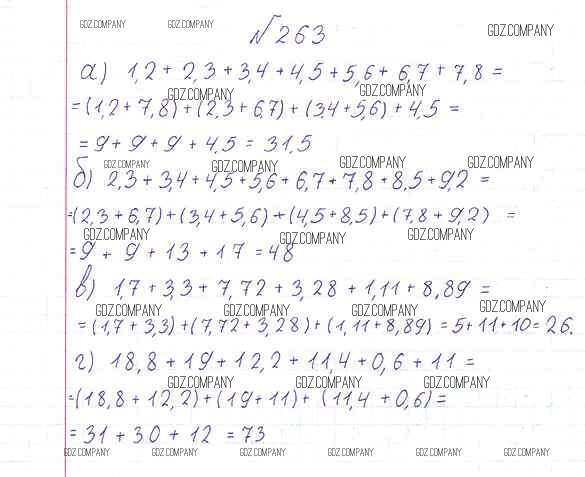 GDZ.COMPANY GDZ.COMPANY GDZ.COMPANY
№ 263
а) 1,2 + 2,3 + 3,4 + 4,5 + 5,6 + 6,7 + 7,8 =
GDZ.COMPANY GDZ.COMPANY
= (1,2 + 7,8) + (2,3 + 6,7) + (3,4 + 5,6) + 4,5 =
= 9 + 9 + 9 + 4,5 = 31,5
GDZ.COMPANY GDZ.COMPANY GDZ.COMPANY GDZ.COMPANY
б) 2,3 + 3,4 + 4,5 + 5,6 + 6,7 + 7,8 + 8,5 + 9,2 =
= (2,3 + 6,7) + (3,4 + 5,6) + (4,5 + 8,5) + (7,8 + 9,2) =
GDZ.COMPANY GDZ.COMPANY GDZ.COMPANY
= 9 + 9 + 13 + 17 = 48
в) 1,7 + 3,3 + 7,72 + 3,28 + 1,11 + 8,89 =
GDZ.COMPANY GDZ.COMPANY GDZ.COMPANY GDZ.COMPANY
= (1,7 + 3,3) + (7,72 + 3,28) + (1,11 + 8,89) = 5 + 11 + 10 = 26.
г) 18,8 + 19 + 12,2 + 11,4 + 0,6 + 11 =
GDZ.COMPANY GDZ.COMPANY GDZ.COMPANY
= (18,8 + 12,2) + (19 + 11) + (11,4 + 0,6) =
= 31 + 30 + 12 = 73
GDZ.COMPANY GDZ.COMPANY GDZ.COMPANY GDZ.COMPANY GDZ.COMPANY GDZ.COMPANY